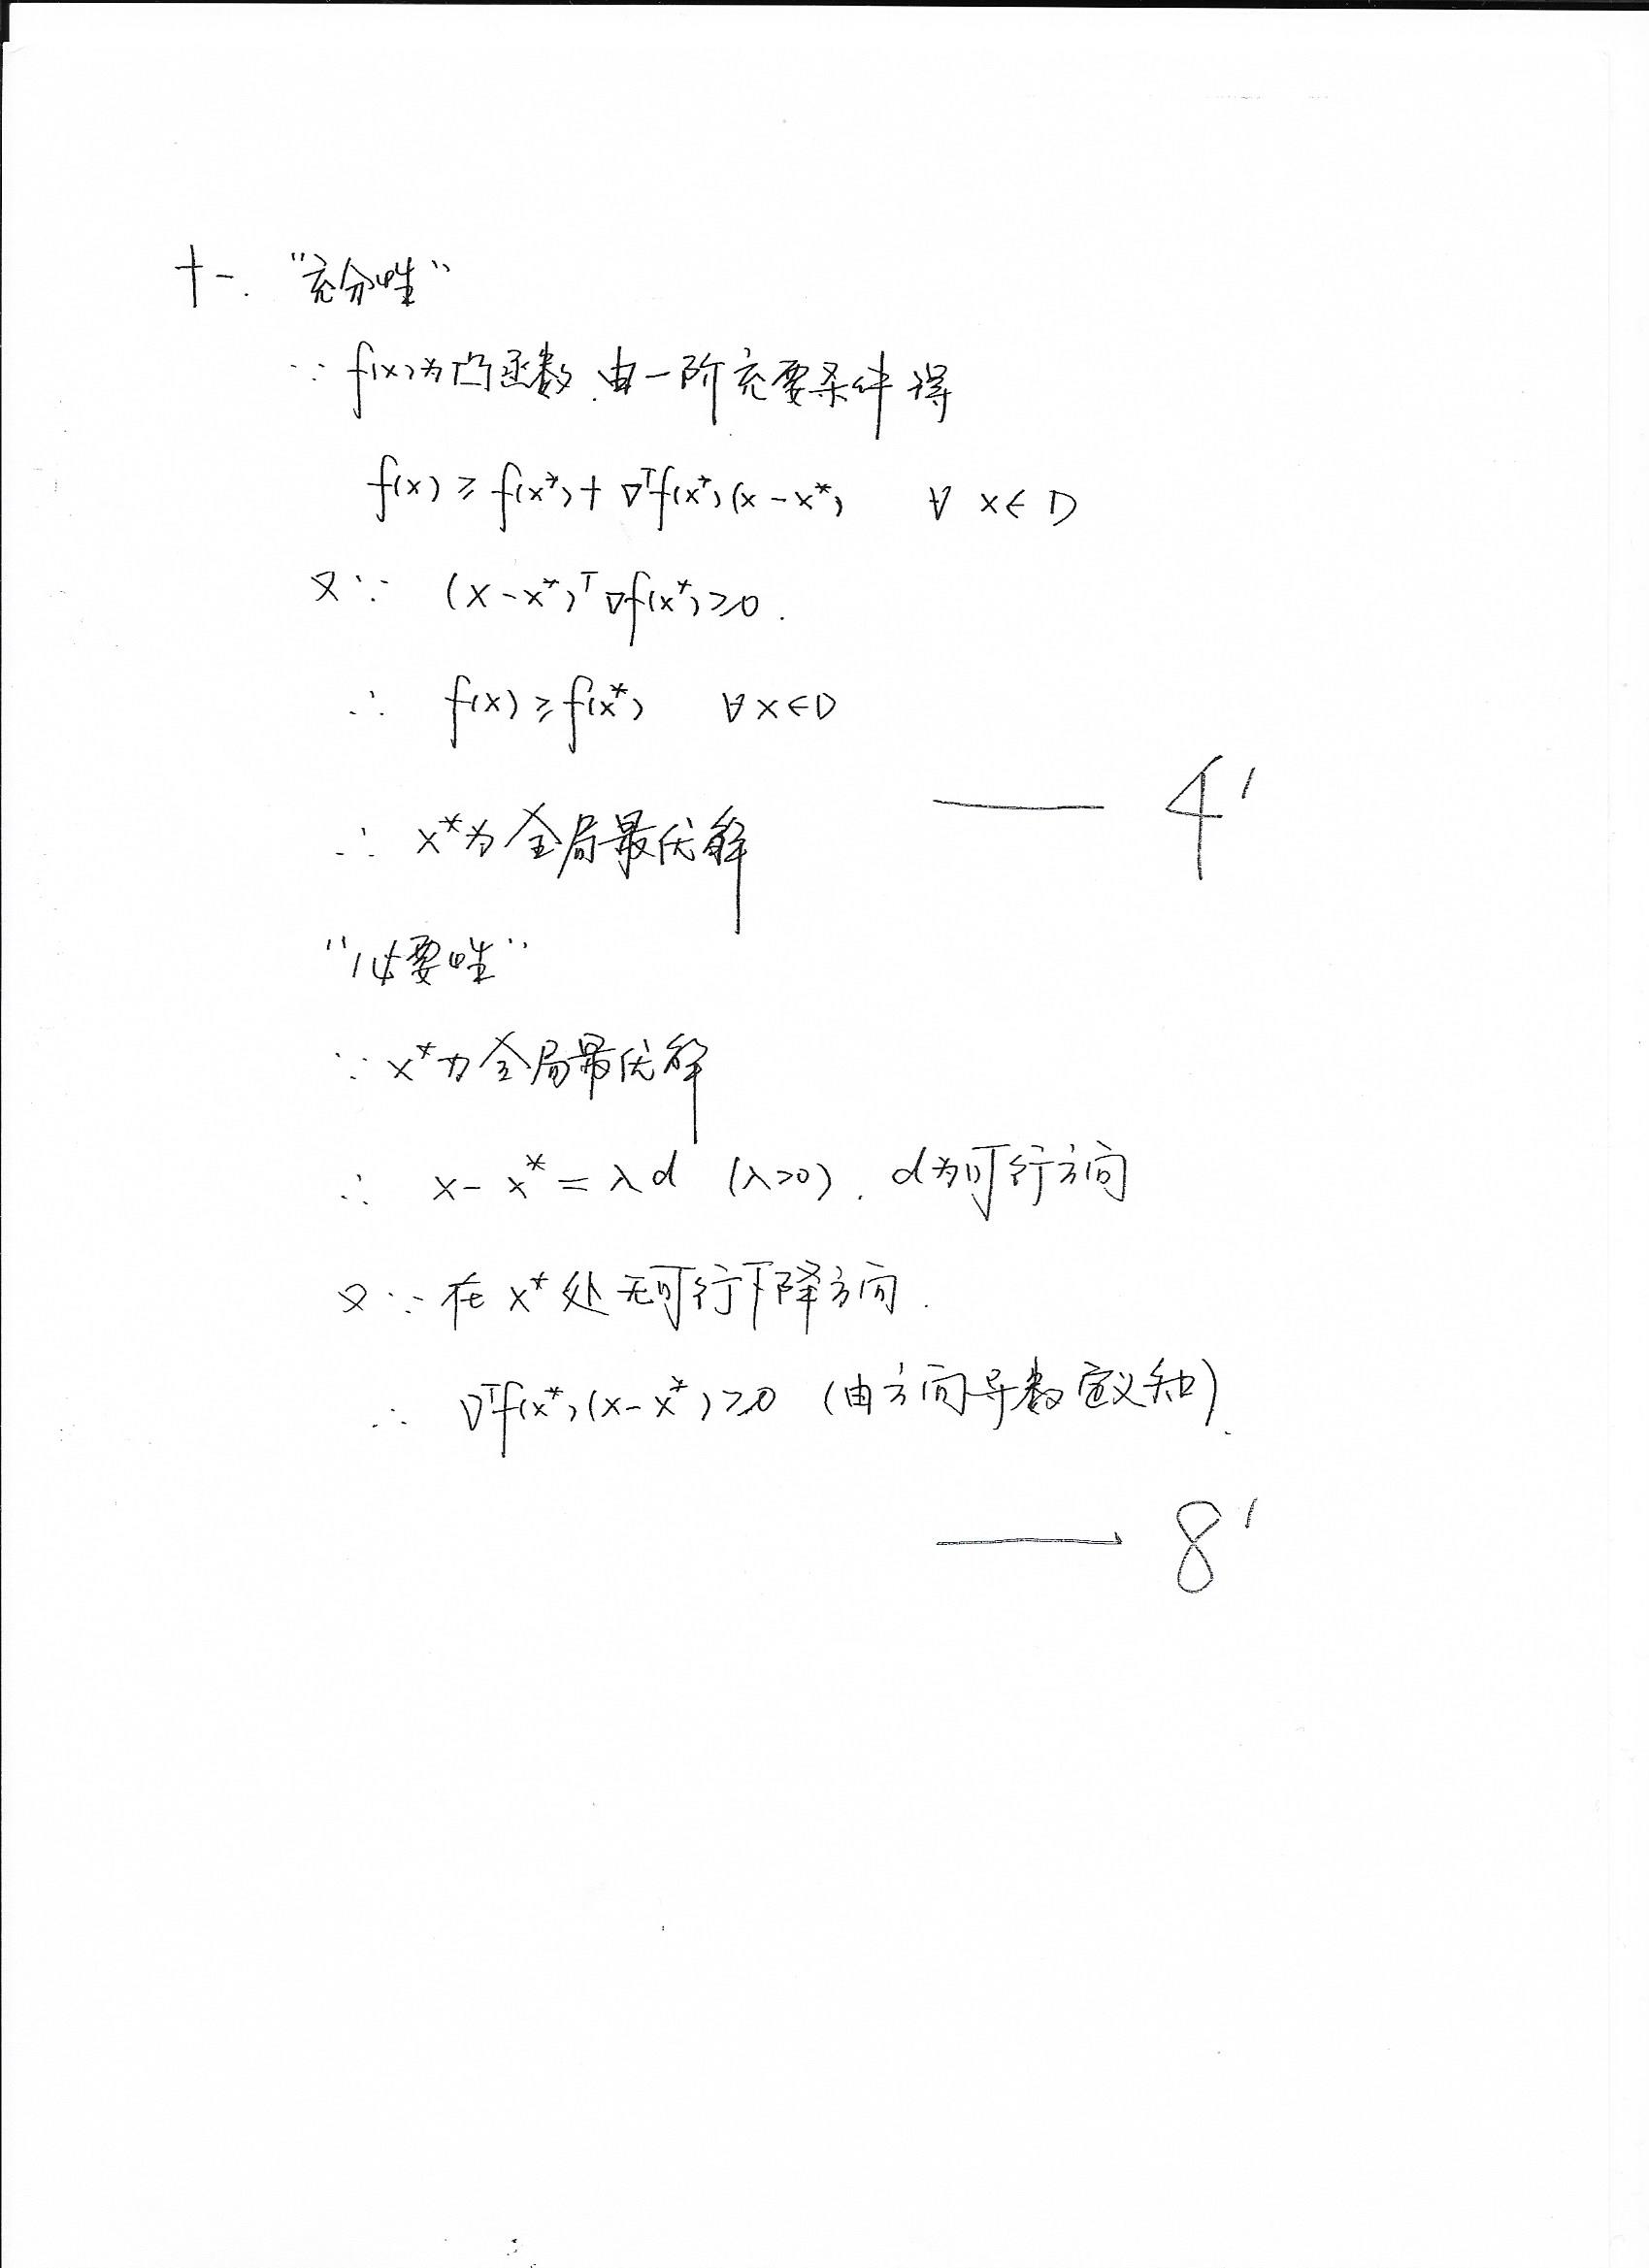 十一. "充分性"
∵ f(x)为凸函数.由一阶充要条件得
f(x) ≥ f(x*) + ∇ᵀf(x*)(x - x*)  ∀ x∈D
又∵ (x - x*)ᵀ∇f(x*) ≥ 0.
∴ f(x) ≥ f(x*)  ∀ x∈D
—— 4'
∴ x*为全局最优解
"必要性"
∵ x*为全局最优解
∴ x - x* = λd (λ>0). d为可行方向
又∵在x*处无可行下降方向.
∴ ∇ᵀf(x*)(x - x*) ≥ 0 (由方向导数定义知).
—— 8'